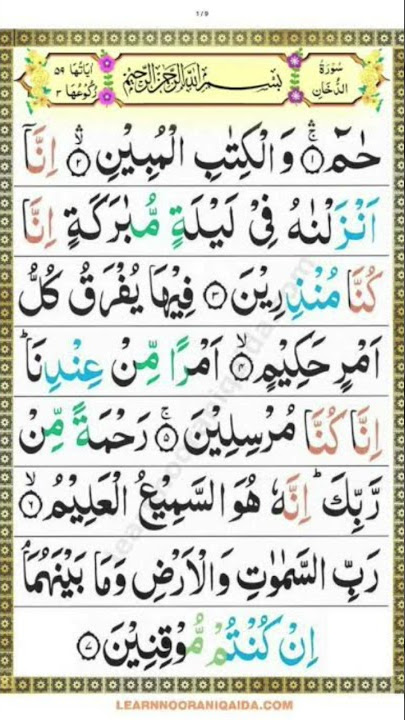 1 / 9
سُوْرَةُ الدُّخَانِ
بِسْمِ اللهِ الرَّحْمٰنِ الرَّحِيْمِ
اٰيَاتُهَا ٥٩
رُكُوْعُهَا ٣
حٰمٓ ۚۛ ۝١ وَ الْكِتٰبِ الْمُبِيْنِ ۙۛ ۝٢ اِنَّاۤ
اَنْزَلْنٰهُ فِىْ لَيْلَةٍ مُّبٰرَكَةٍ اِنَّا
كُنَّا مُنْذِرِيْنَ ۝٣ فِيْهَا يُفْرَقُ كُلُّ
اَمْرٍ حَكِيْمٍ ۙ ۝٤ اَمْرًا مِّنْ عِنْدِنَا ؕ
اِنَّا كُنَّا مُرْسِلِيْنَ ۚ ۝٥ رَحْمَةً مِّنْ
رَّبِّكَ ؕ اِنَّهٗ هُوَ السَّمِيْعُ الْعَلِيْمُ ۙ ۝٦
رَبِّ السَّمٰوٰتِ وَ الْاَرْضِ وَ مَا بَيْنَهُمَا ۘ
اِنْ كُنْتُمْ مُّوْقِنِيْنَ ۝٧
learnnooraniqaida.com
LEARNNOORANIQAIDA.COM